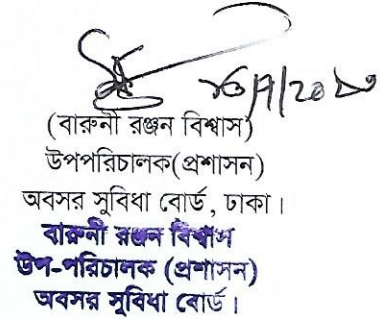 (বারুনী রঞ্জন বিশ্বাস)
উপপরিচালক(প্রশাসন)
অবসর সুবিধা বোর্ড, ঢাকা।
বারুনী রঞ্জন বিশ্বাস
উপ-পরিচালক (প্রশাসন)
অবসর সুবিধা বোর্ড।